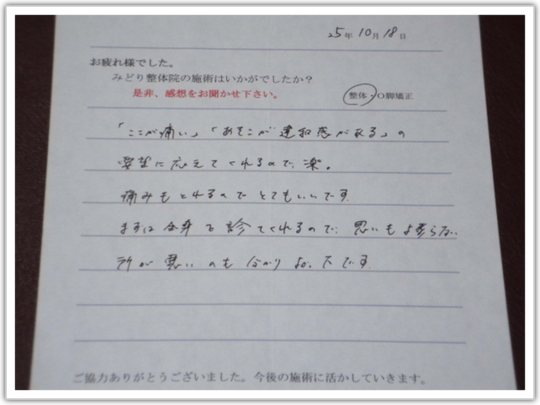 25年10月18日
お疲れ様でした。
みどり整体院の施術はいかがでしたか?
是非、感想をお聞かせ下さい。
整体・O脚矯正
「ここが痛い」「あそこが違和感がある」の
要望に応えてくれるので、楽。
痛みもとれるのでとてもいいです
まずは全身を診てくれるので、思いもよらない
所が悪いのも分かりよかったです
ご協力ありがとうございました。今後の施術に活かしていきます。